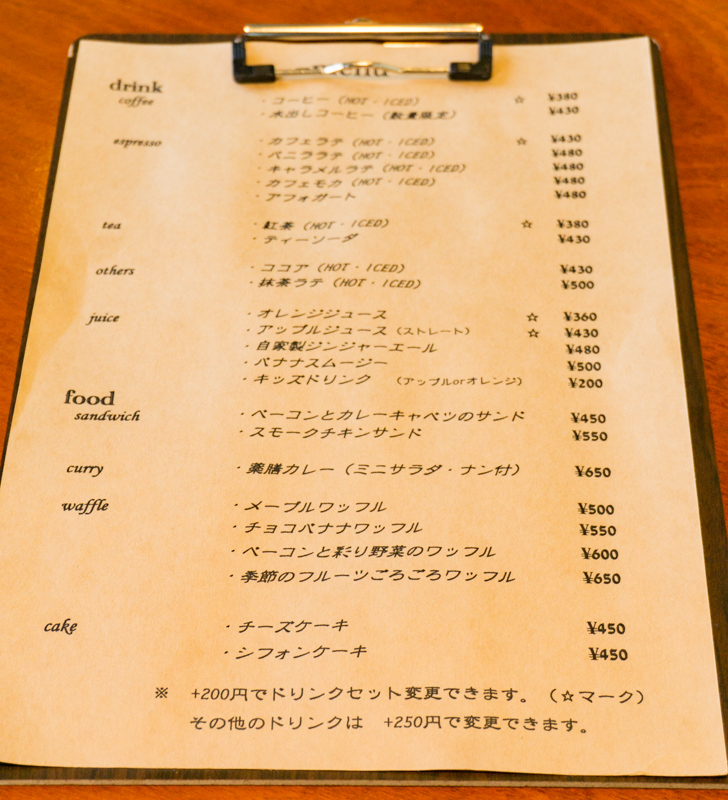 Menu
drink
coffee ・コーヒー（HOT・ICED） ☆ ¥380
・水出しコーヒー（数量限定） ¥430
espresso ・カフェラテ（HOT・ICED） ☆ ¥430
・バニララテ（HOT・ICED） ¥480
・キャラメルラテ（HOT・ICED） ¥480
・カフェモカ（HOT・ICED） ¥480
・アフォガート ¥480
tea ・紅茶（HOT・ICED） ☆ ¥380
・ティーソーダ ¥430
others ・ココア（HOT・ICED） ¥430
・抹茶ラテ（HOT・ICED） ¥500
juice ・オレンジジュース ☆ ¥360
・アップルジュース（ストレート） ☆ ¥430
・自家製ジンジャーエール ¥480
・バナナスムージー ¥500
・キッズドリンク （アップルorオレンジ） ¥200
food
sandwich ・ベーコンとカレーキャベツのサンド ¥450
・スモークチキンサンド ¥550
curry ・薬膳カレー（ミニサラダ・ナン付） ¥650
waffle ・メープルワッフル ¥500
・チョコバナナワッフル ¥550
・ベーコンと彩り野菜のワッフル ¥600
・季節のフルーツごろごろワッフル ¥650
cake ・チーズケーキ ¥450
・シフォンケーキ ¥450
※ +200円でドリンクセット変更できます。（☆マーク）
その他のドリンクは +250円で変更できます。